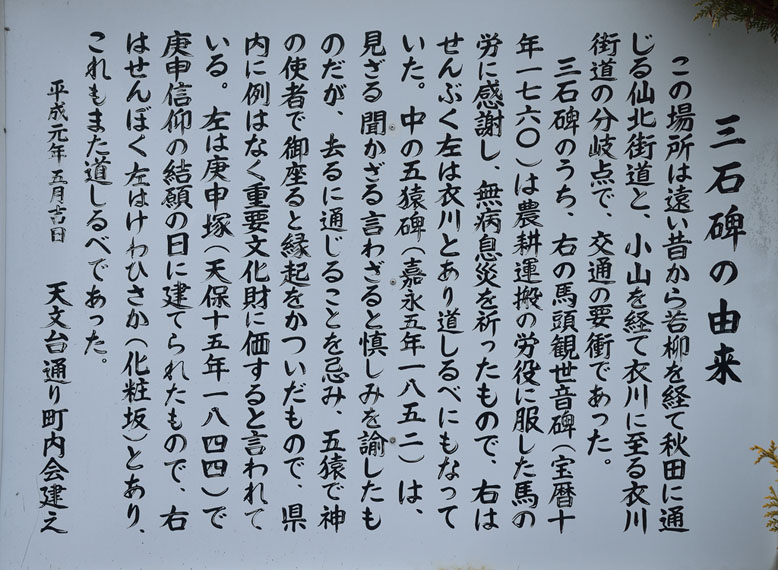 三石碑の由来
この場所は遠い昔から若柳を経て秋田に通
じる仙北街道と、小山を経て衣川に至る衣川
街道の分岐点で、交通の要衝であった。
三石碑のうち、右の馬頭観世音碑（宝暦十
年一七六〇）は農耕運搬の労役に服した馬の
労に感謝し、無病息災を祈ったもので、右は
せんぶく左は衣川とあり道しるべにもなって
いた。中の五猿碑（嘉永五年一八五二）は、
見ざる聞かざる言わざると慎しみを諭したも
のだが、去るに通じることを忌み、五猿で神
の使者で御座ると縁起をかついだもので、県
内に例はなく重要文化財に価すると言われて
いる。左は庚申塚（天保十五年一八四四）で
庚申信仰の結願の日に建てられたもので、右
はせんぼく左はけわひさか（化粧坂）とあり、
これもまた道しるべであった。
平成元年五月吉日　天文台通り町内会建之